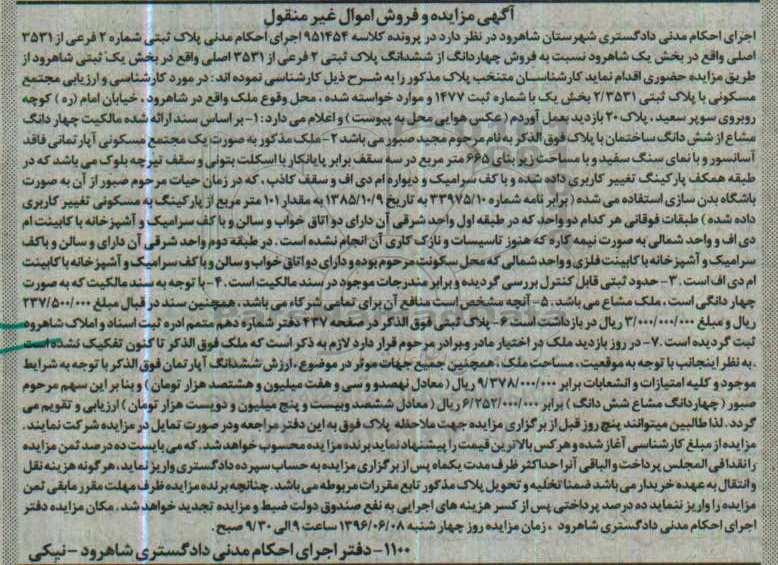 آگهی مزایده و فروش اموال غیر منقول
اجرای احکام مدنی دادگستری شهرستان شاهرود در نظر دارد در پرونده کلاسه ۹۵۱۴۵۴ اجرای احکام مدنی پلاک ثبتی شماره ۲ فرعی از ۳۵۳۱
اصلی واقع در بخش یک شاهرود نسبت به فروش چهاردانگ از ششدانگ پلاک ثبتی ۲ فرعی از ۳۵۳۱ اصلی واقع در بخش یک ثبتی شاهرود از
طریق مزایده حضوری اقدام نماید کارشناسان منتخب پلاک مذکور را به شرح ذیل کارشناسی نموده اند : در مورد کارشناسی و ارزیابی مجتمع
مسکونی با پلاک ثبتی ۲/۳۵۳۱ بخش یک با شماره ثبت ۱۴۷۷ و موارد خواسته شده ، محل وقوع ملک واقع در شاهرود ، خیابان امام (ره ) کوچه
روبروی سوپر سعید ، پلاک ۲۰ بازدید بعمل آوردم ( عکس هوایی محل به پیوست ) و اعلام می دارد : ۱- بر اساس سند ارائه شده مالکیت چهار دانگ
مشاع از شش دانگ ساختمان با پلاک فوق الذکر به نام مرحوم مجید صبور می باشد ۲- ملک مذکور به صورت یک مجتمع مسکونی آپارتمانی فاقد
آسانسور و با نمای سنگ سفید و با مساحت زیر بنای ۶۶۵ متر مربع در سه سقف برابر پایانکار با اسکلت بتونی و سقف تیرچه بلوک می باشد که در
طبقه همکف پارکینگ تغییر کاربری داده شده و با کف سرامیک و دیواره ام دی اف و سقف کاذب ، که در زمان حیات مرحوم صبور از آن به صورت
باشگاه بدن سازی استفاده می شده ( برابر نامه شماره ۳۳۹۷۵/۱۰ به تاریخ ۱۳۸۵/۱۰/۹ به مقدار ۱۰۱ متر مربع از پارکینگ به مسکونی تغییر کاربری
داده شده ) طبقات فوقانی هر کدام دو واحد که در طبقه اول واحد شرقی آن دارای دو اتاق خواب و سالن و با کف سرامیک و آشپزخانه با کابینت ام
دی اف و واحد شمالی به صورت نیمه کاره که هنوز تاسیسات و نازک کاری آن انجام نشده است . در طبقه دوم واحد شرقی آن دارای و سالن و باکف
سرامیک و آشپزخانه با کابینت فلزی و واحد شمالی که محل سکونت مرحوم بوده و دارای دو اتاق خواب و سالن و با کف سرامیک و آشپزخانه با کابینت
ام دی اف است . ۳- حدود ثبتی قابل کنترل بررسی گردیده و برابر مندرجات موجود در سند مالکیت است . ۴- با توجه به سند مالکیت که به صورت
چهار دانگی است ، ملک مشاع می باشد . ۵- آنچه مشخص است منافع آن برای تمامی شرکاء می باشد . همچنین سند در قبال مبلغ ۲۳۷/۵۰۰/۰۰۰
ریال و مبلغ ۳/۰۰۰/۰۰۰/۰۰۰ ریال در بازداشت است ۶- پلاک ثبتی فوق الذکر در صفحه ۴۳۷ دفتر شماره دهم متمم ادره ثبت اسناد و املاک شاهرود
ثبت گردیده است . ۷- در روز بازدید ملک در اختیار مادر و برادر مرحوم قرار دارد لازم به ذکر است که ملک فوق الذکر تا کنون تفکیک نشده است
. به نظر اینجانب با توجه به موقعیت ، مساحت ملک ، همچنین جمیع جهات موثر در موضوع ، ارزش ششدانگ آپارتمان فوق الذکر با توجه به شرایط
موجود و کلیه امتیازات و انشعابات برابر ۹/۳۷۸/۰۰۰/۰۰۰ ریال ( معادل نهصدو و سی و هفت میلیون و هشتصد هزار تومان ) و بنا بر این سهم مرحوم
صبور ( چهاردانگ مشاع شش دانگ ) برابر ۶/۲۵۲/۰۰۰/۰۰۰ ریال ( معادل ششصد وبیست و پنج میلیون و دویست هزار تومان ) ارزیابی و تقویم می
گردد . لذا طالبین میتوانند پنج روز قبل از برگزاری مزایده جهت ملاحظه پلاک فوق به این دفتر مراجعه ودر صورت تمایل در مزایده شرکت نمایند .
مزایده از مبلغ کارشناسی آغاز شده و هر کس بالاترین قیمت را پیشنهاد نماید برنده مزایده محسوب خواهد شد . که می بایست ده درصد ثمن مزایده
را نقدا فی المجلس پرداخت و الباقی آنرا حداکثر ظرف مدت یکماه پس از برگزاری مزایده به حساب سپرده دادگستری واریز نماید ، هر گونه هزینه نقل
و انتقال به عهده خریدار می باشد ضمنا تخلیه و تحویل پلاک مذکور تابع مقررات مربوطه می باشد . چنانچه برنده مزایده ظرف مهلت مقرر مابقی ثمن
مزایده را واریز ننماید ده درصد پرداختی پس از کسر هزینه های اجرایی به نفع صندوق دولت ضبط و مزایده تجدید خواهد شد . مکان مزایده دفتر
اجرای احکام مدنی دادگستری شاهرود ، زمان مزایده روز چهار شنبه ۱۳۹۶/۰۶/۰۸ ساعت ۹ الی ۹/۳۰ صبح .
۱۱۰۰- دفتر اجرای احکام مدنی دادگستری شاهرود - نیکی